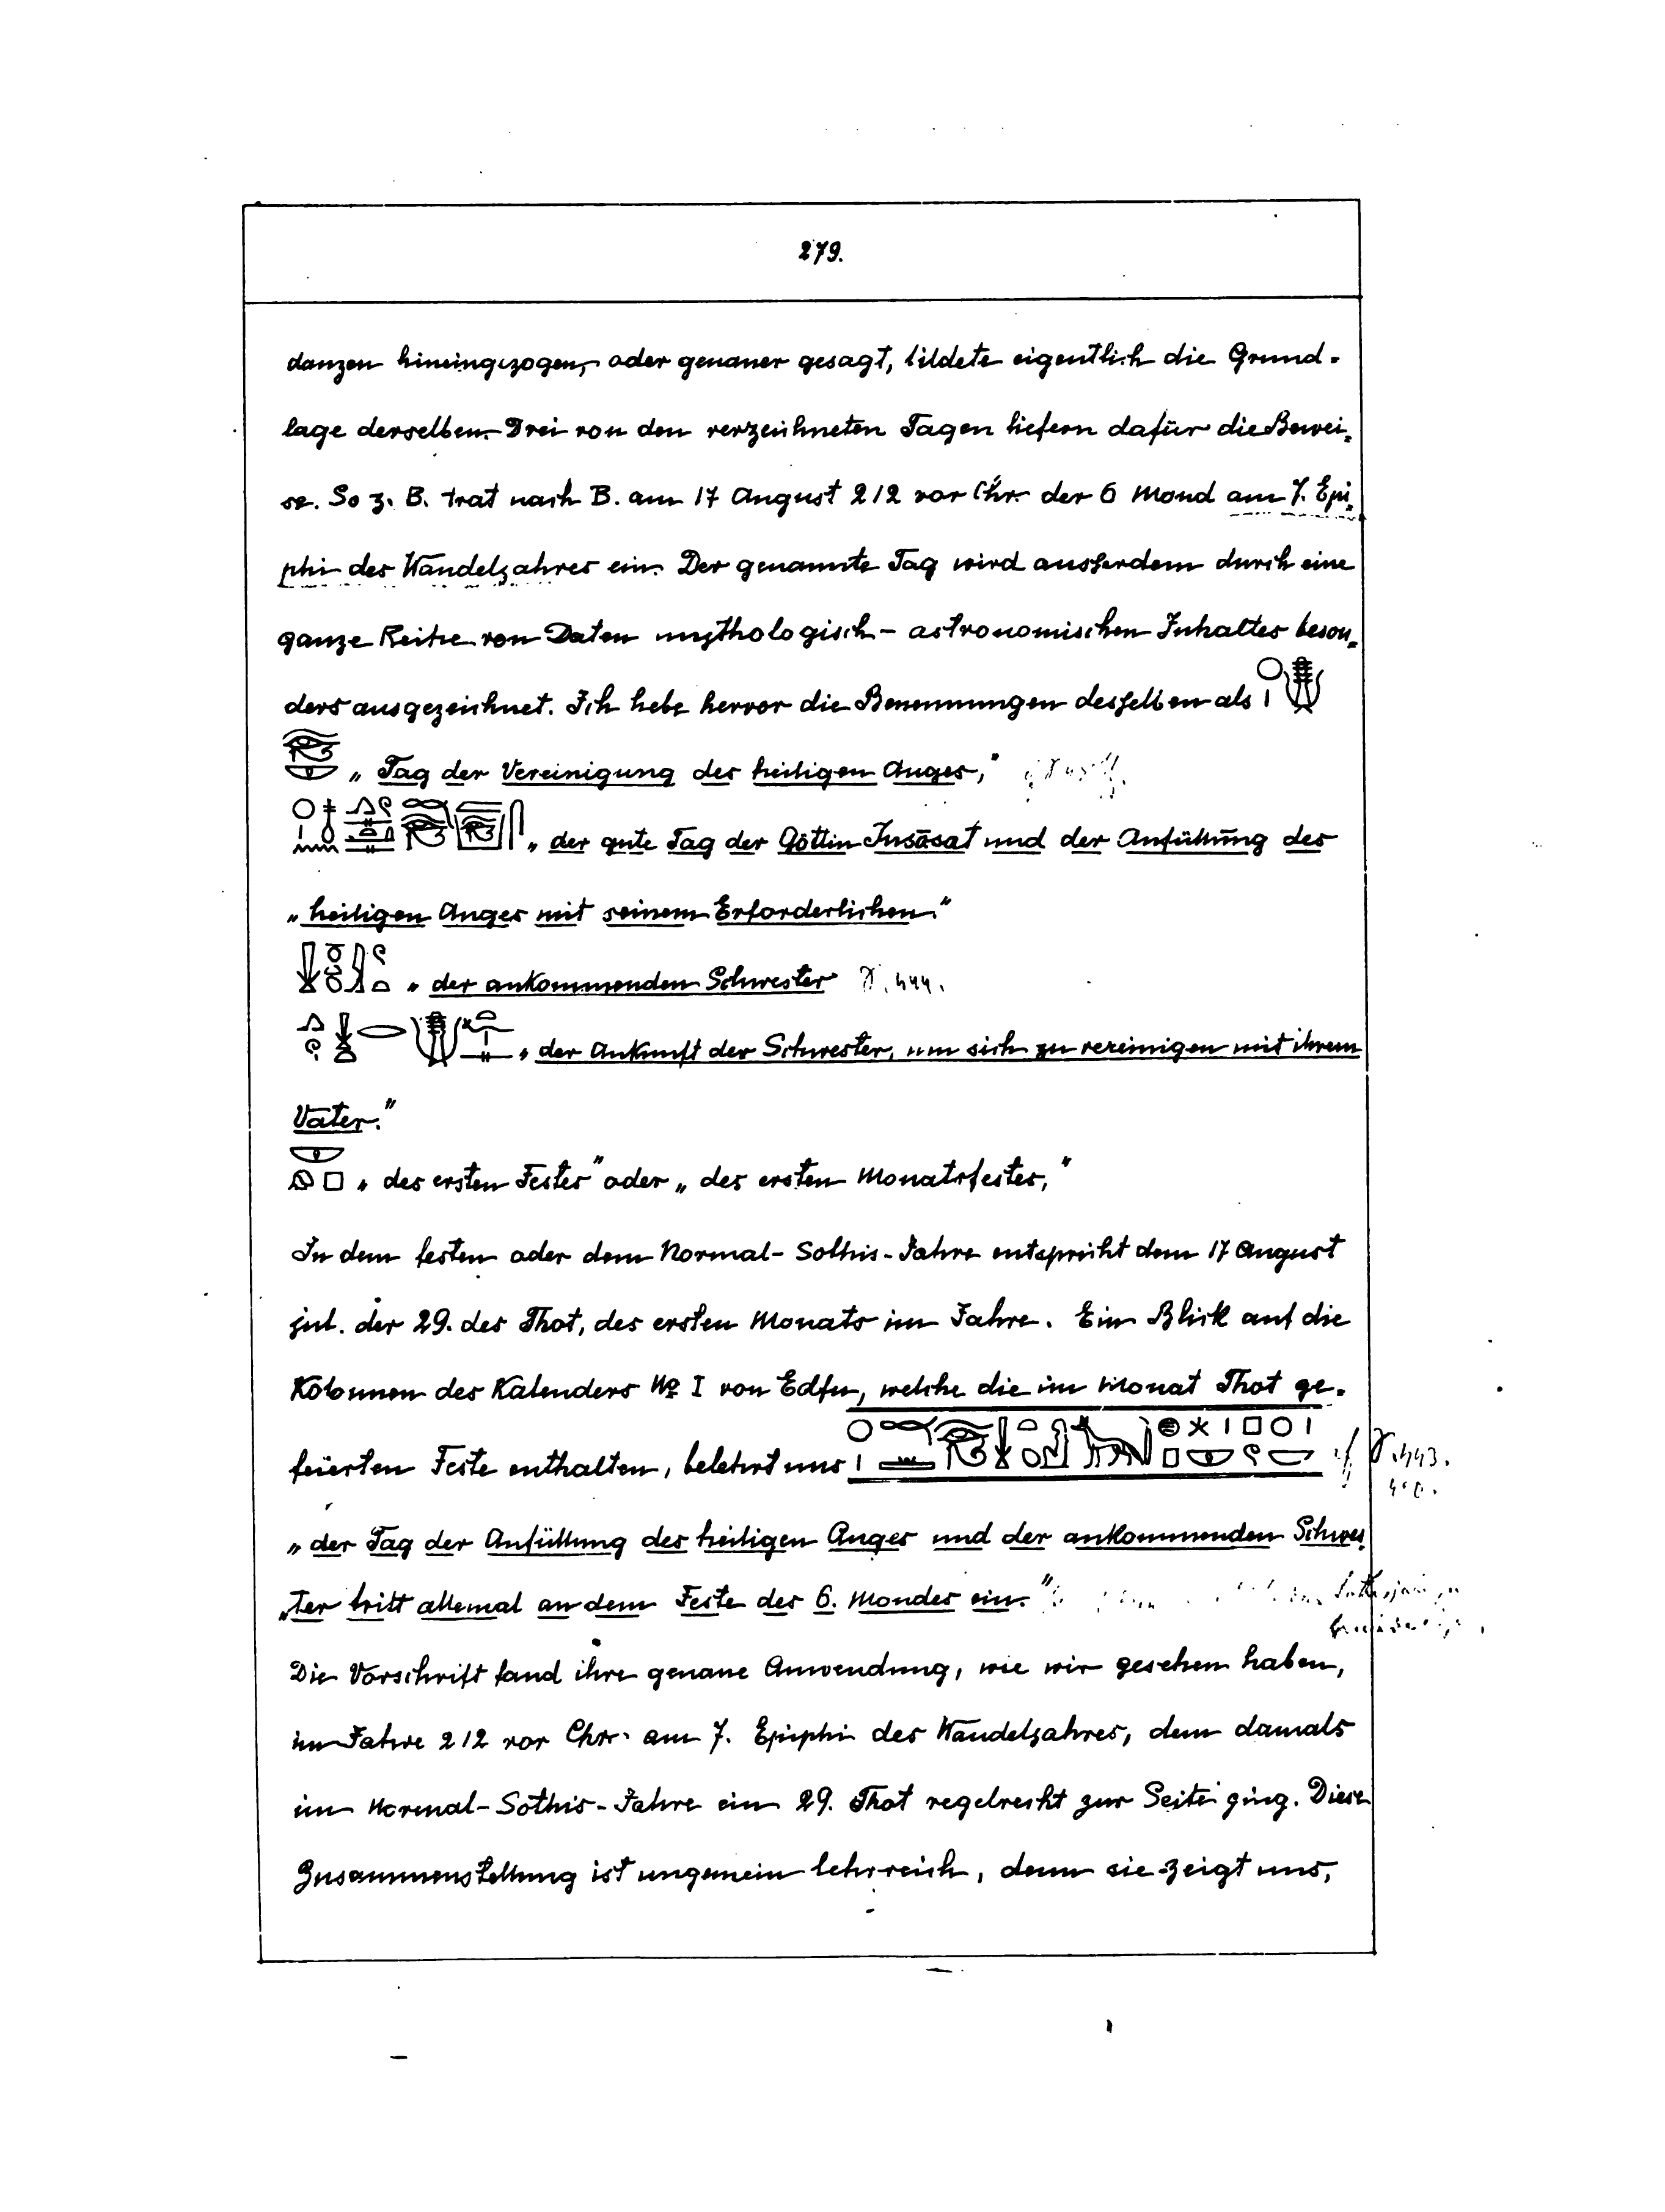 279.
danzen hineingezogen, oder genauer gesagt, bildete eigentlich die Grund-
lage derselben. Drei von den verzeichneten Tagen liefern dafür die Bewei-
se. So z. B. trat nach B. am 17 August 212 vor Chr. der 6 Mond am 7. Epi-
phi des Wandeljahres ein. Der genannte Tag wird ausserdem durch eine
ganze Reihe von Daten mythologisch-astronomischen Inhaltes beson-
ders ausgezeichnet. Ich hebe hervor die Benennungen desselben als
„Tag der Vereinigung des heiligen Auges,"
„der gute Tag der Göttin Jusāsat und der Anfüllung des
„heiligen Auges mit seinem Erforderlichen."
„der ankommenden Schwester 444.
„der Ankunft der Schwester, um sich zu vereinigen mit ihrem
Vater."
„des ersten Festes" oder „des ersten Monatsfestes,"
In dem festen oder dem Normal-Sothis-Jahre entspricht dem 17 August
jul. der 29. des Thot, des ersten Monats im Jahre. Ein Blick auf die
Kolumnen des Kalenders No I von Edfu, welche die im Monat Thot ge-
feierten Feste enthalten, belehrt uns 443.
„der Tag der Anfüllung des heiligen Auges und der ankommenden Schwes-
„ter tritt allemal an dem Feste des 6. Mondes ein."
Die Vorschrift fand ihre genaue Anwendung, wie wir gesehen haben,
im Jahre 212 vor Chr. am 7. Epiphi des Wandeljahres, dem damals
im Normal-Sothis-Jahre ein 29. Thot regelrecht zur Seite ging. Diese
Zusammenstellung ist ungemein lehrreich, denn sie zeigt uns,